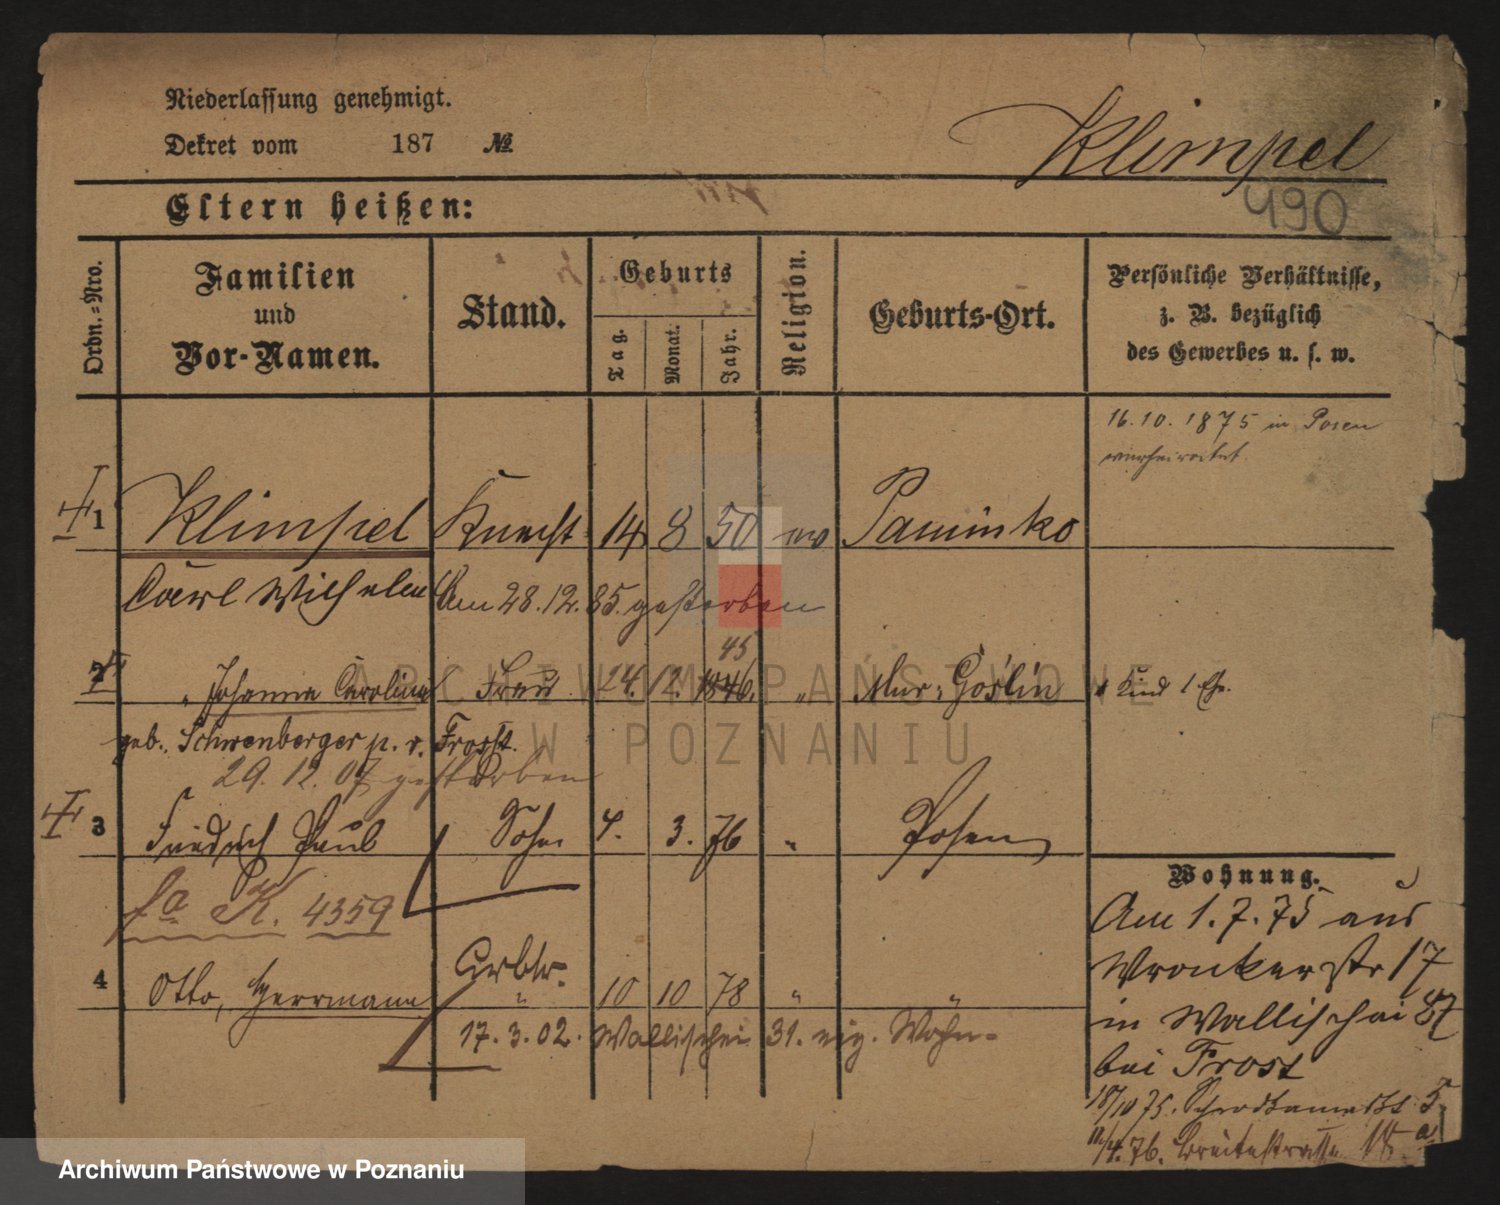 Niederlassung genehmigt.
Dekret vom 187 №
Klimpel
490
Eltern heißen:
Ordn.-Nro.
Familien
und
Vor-Namen.
Stand.
Geburts
Tag.
Monat.
Jahr.
Religion.
Geburts-Ort.
Persönliche Verhältnisse,
z. B. bezüglich
des Gewerbes u. s. w.
16.10.1875 in Posen
verheiratet.
1 Klimpel Knecht 14 8 50 ev Paminko
Carl Wilhelm Am 28.12.85. gestorben
45
2 " Johanna Carolina Frau 24. 12. 1846. " Mur: Goslin 1 Kind 1. Eh.
geb. Schwenberger p. v. Frost.
29.12.07 gestorben
3 Friedrich Paul Sohn 4. 3. 76 " Posen
fa K. 4359
Wohnung.
Am 1.7.75 aus
Wronkerstr 17
in Wallischei 87
bei Frost
18/10 75. 5
11/4.76. Breitestrasse 18a
Arbtr.
4 Otto, Herrmann " 10 10 78 " "
17.3.02. Wallischei 31. eig. Wohn-
ARCHIWUM PAŃSTWOWE
W POZNANIU
Archiwum Państwowe w Poznaniu